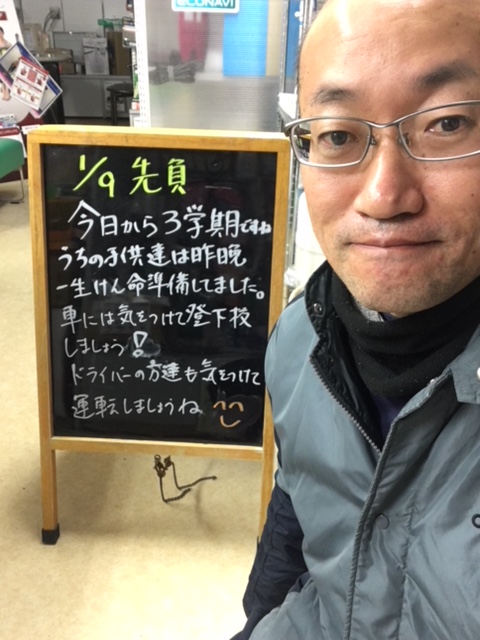 ECONAVI
1/9 先負
今日から3学期ですね
うちの子供達は昨晩
一生けん命準備してました。
車には気をつけて登下校
しましょう!
ドライバーの方達も気をつけて
運転しましょうね